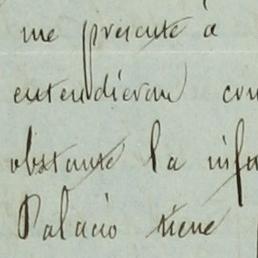 me presenté á
entendieran con
obstante la infa
Palacio tiene